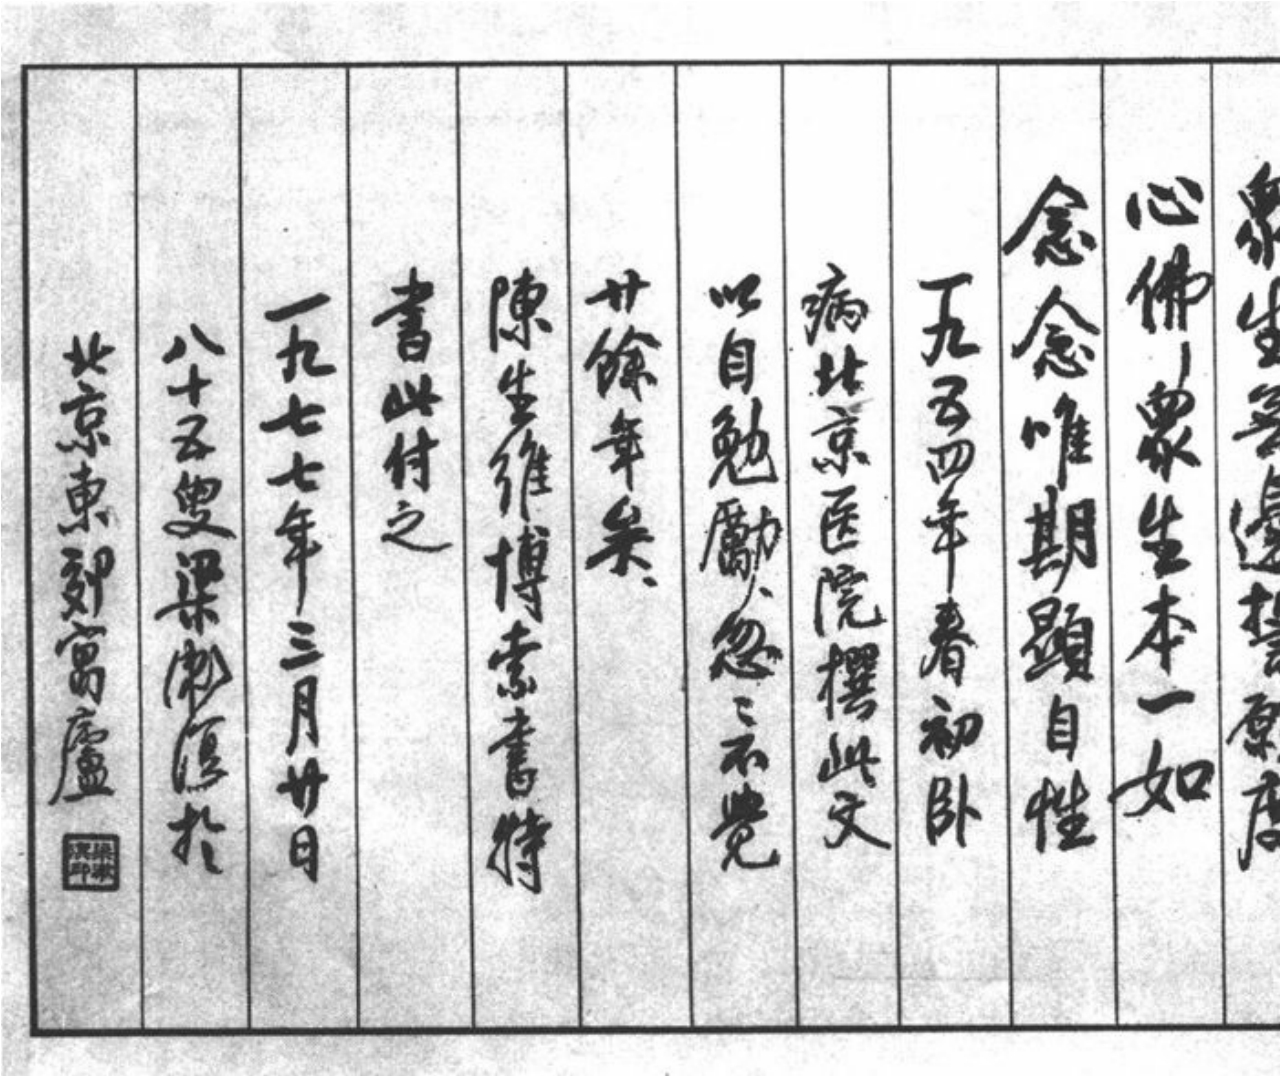 眾生無邊誓願度
心佛、眾生本一如
念念唯期顯自性
一九五四年春初卧
病北京医院撰此文
以自勉勵、忽〻不覺
廿餘年矣、
陳生維博索書特
書此付之
一九七七年三月廿日
八十五叟梁漱溟於
北京東郊寓廬
梁漱溟印